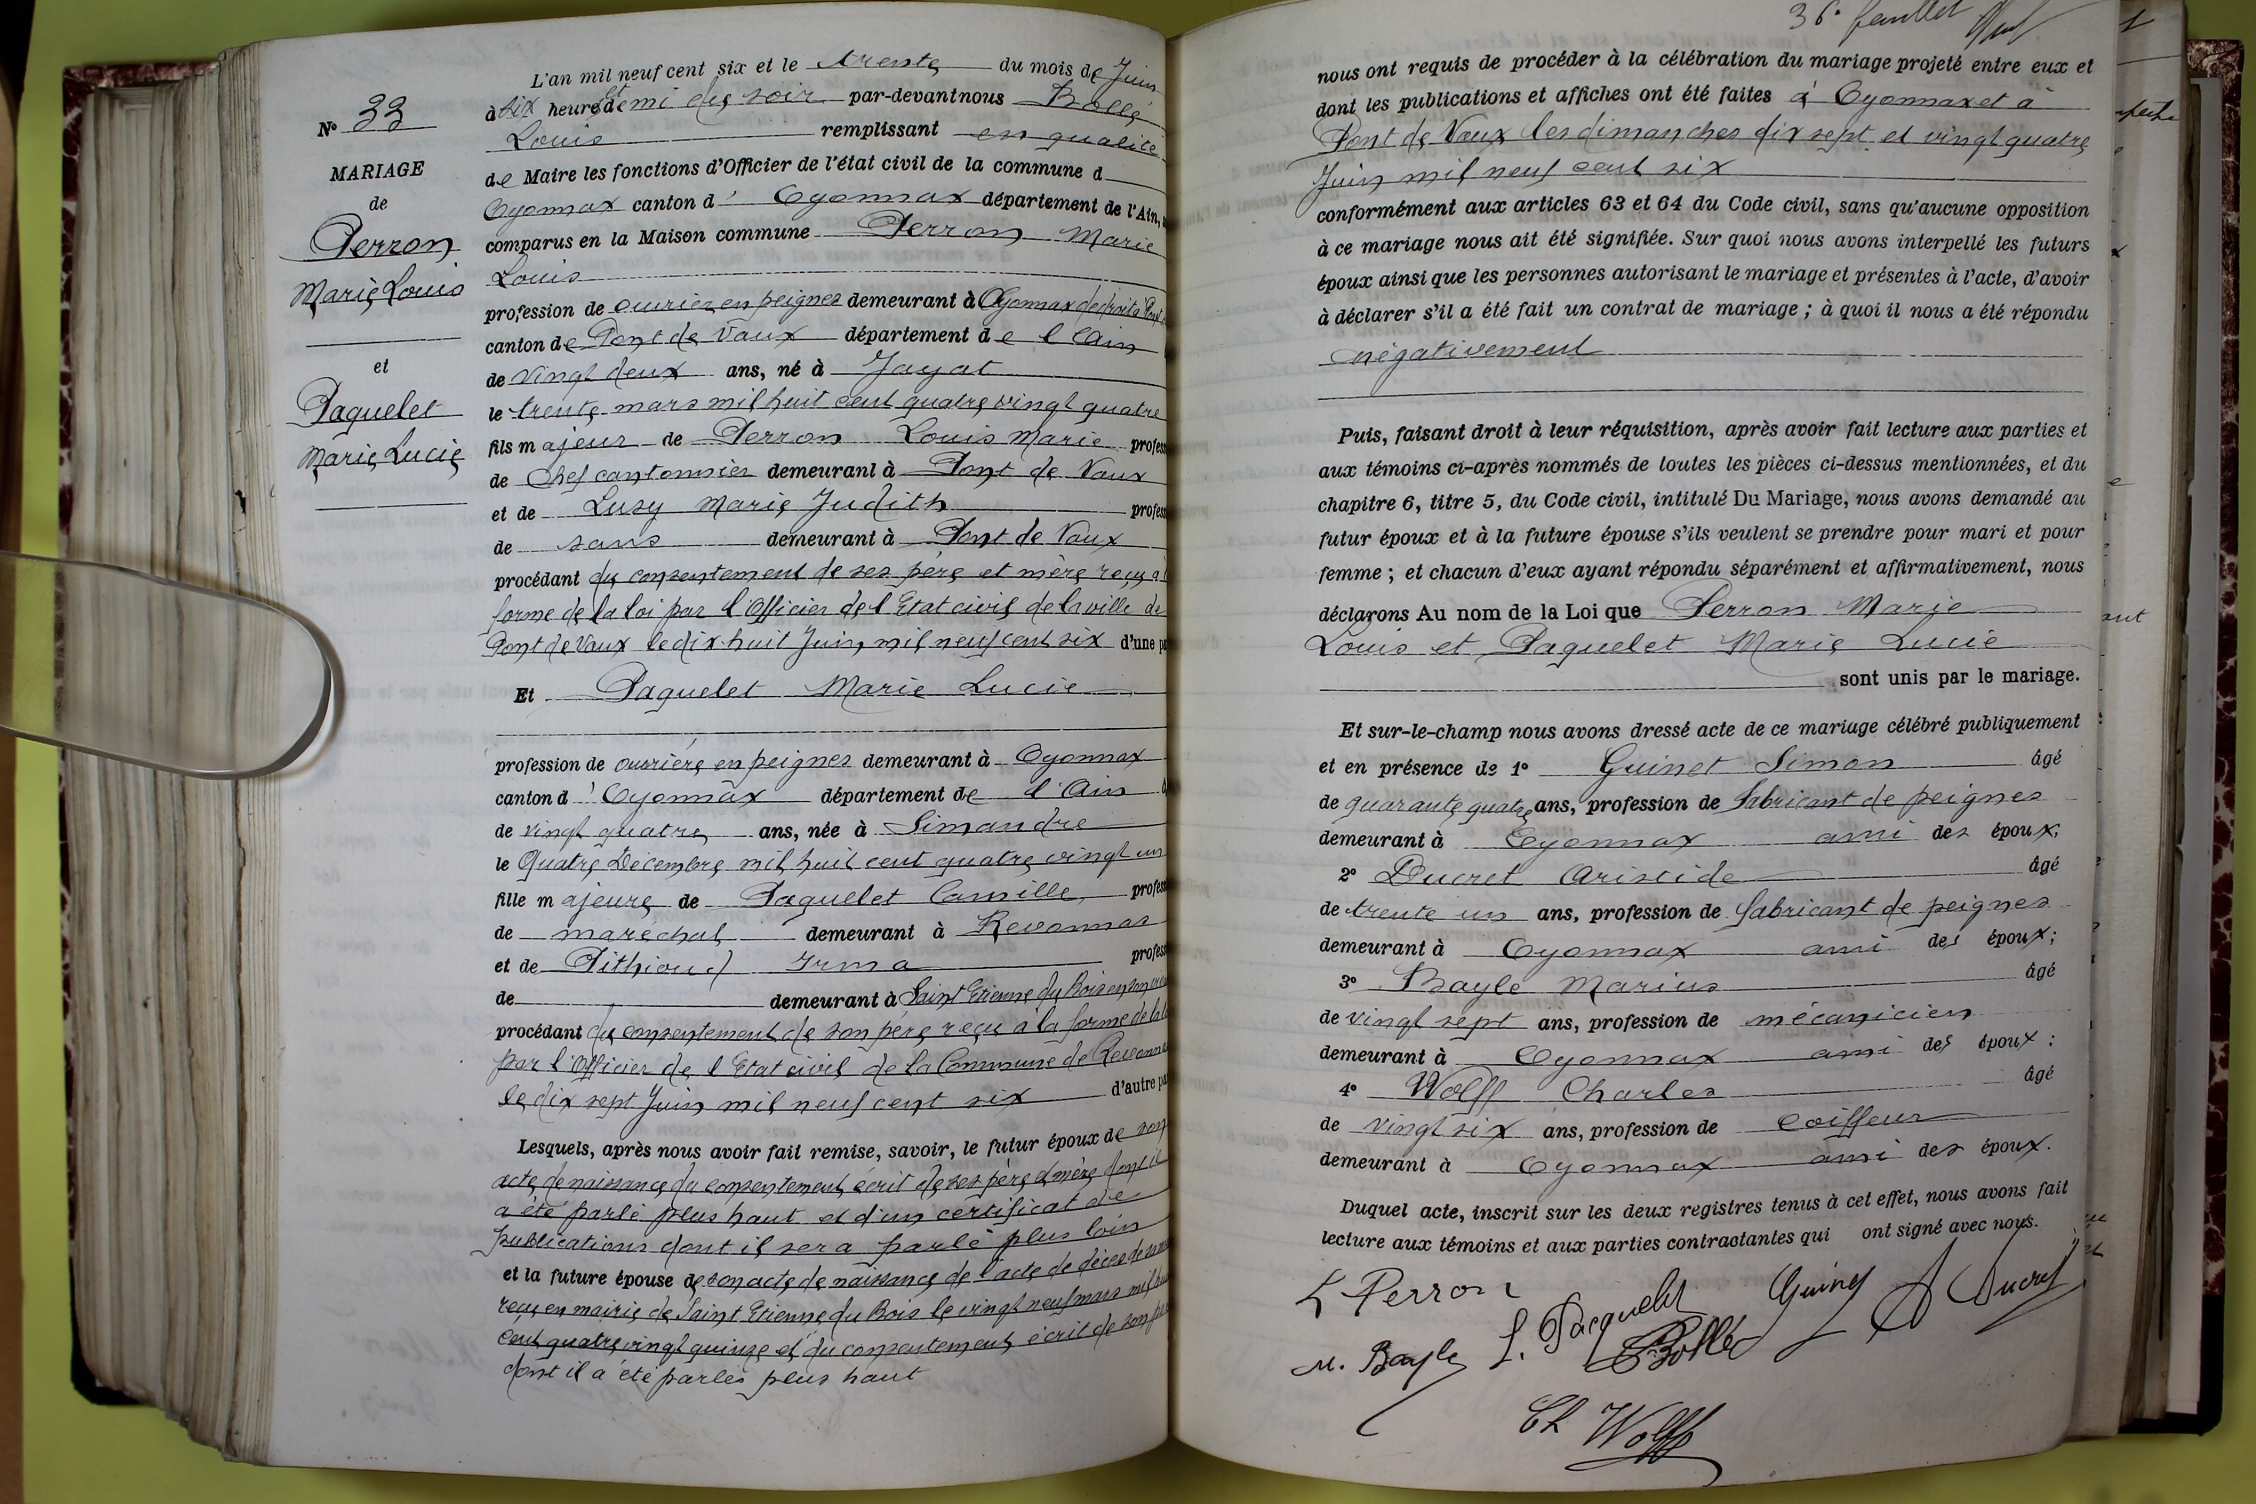 N° 33
MARIAGE
de
Perron
Marie Louis
et
Paquelet
Marie Lucie
L'an mil neuf cent six et le trente du mois de Juin
à six heures et demi du soir par-devant nous Bollé
Louis remplissant en qualité
de Maire les fonctions d'Officier de l'état civil de la commune d
Oyonnax canton d' Oyonnax département de l'Ain,
comparus en la Maison commune Perron Marie
Louis
profession de ouvrier en peignes demeurant à Oyonnax de droit à Pont
canton de Pont de Vaux département de l'Ain
de vingt deux ans, né à Jayat
le trente mars mil huit cent quatre vingt quatre
fils majeur de Perron Louis Marie profess
de Chef cantonnier demeurant à Pont de Vaux
et de Lusy Marie Judith profess
de sans demeurant à Pont de Vaux
procédant du consentement de ses père et mère reçu à
forme de la loi par l'Officier de l'Etat civil de la ville de
Pont de Vaux le dix huit Juin mil neuf cent six d'une pa
Et Paquelet Marie Lucie
profession de ouvrière en peignes demeurant à Oyonnax
canton d' Oyonnax département de l'Ain
de vingt quatre ans, née à Simandre
le Quatre Décembre mil huit cent quatre vingt un
fille majeure de Paquelet Camille profess
de maréchal demeurant à Revonnas
et de Pithioud Irma profess
de demeurant à Saint Etienne du Bois en son
procédant du consentement de son père reçu à la forme de la
par l'Officier de l'Etat civil de la Commune de Revonna
le dix sept Juin mil neuf cent six d'autre pa
Lesquels, après nous avoir fait remise, savoir, le futur époux de son
acte de naissance du consentement écrit de ses père et mère dont il
a été parlé plus haut et d'un certificat de
publications dont il sera parlé plus loin
et la future épouse de son acte de naissance de l'acte de décès de sa
reçu en mairie de Saint Etienne du Bois le vingt neuf mars mil hu
cent quatre vingt quinze et du consentement écrit de son pè
dont il a été parlés plus haut
36e feuillet
nous ont requis de procéder à la célébration du mariage projeté entre eux et
dont les publications et affiches ont été faites à Oyonnax et à
Pont de Vaux les dimanches dix sept et vingt quatre
Juin mil neuf cent six
conformément aux articles 63 et 64 du Code civil, sans qu'aucune opposition
à ce mariage nous ait été signifiée. Sur quoi nous avons interpellé les futurs
époux ainsi que les personnes autorisant le mariage et présentes à l'acte, d'avoir
à déclarer s'il a été fait un contrat de mariage ; à quoi il nous a été répondu
négativement
Puis, faisant droit à leur réquisition, après avoir fait lecture aux parties et
aux témoins ci-après nommés de toutes les pièces ci-dessus mentionnées, et du
chapitre 6, titre 5, du Code civil, intitulé Du Mariage, nous avons demandé au
futur époux et à la future épouse s'ils veulent se prendre pour mari et pour
femme ; et chacun d'eux ayant répondu séparément et affirmativement, nous
déclarons Au nom de la Loi que Perron Marie
Louis et Paquelet Marie Lucie
sont unis par le mariage.
Et sur-le-champ nous avons dressé acte de ce mariage célébré publiquement
et en présence de 1° Guinet Simon âgé
de quarante quatre ans, profession de fabricant de peignes
demeurant à Oyonnax ami des époux;
2° Ducret Aristide âgé
de trente un ans, profession de fabricant de peignes
demeurant à Oyonnax ami des époux;
3° Bayle Marius âgé
de vingt sept ans, profession de mécanicien
demeurant à Oyonnax ami des époux :
4° Wolff Charles âgé
de vingt six ans, profession de Coiffeur
demeurant à Oyonnax ami des époux.
Duquel acte, inscrit sur les deux registres tenus à cet effet, nous avons fait
lecture aux témoins et aux parties contractantes qui ont signé avec nous.
L Perron
L. Pacquelet
Guinet
A Ducret
M. Bayle
Bollé
Ch Wolff